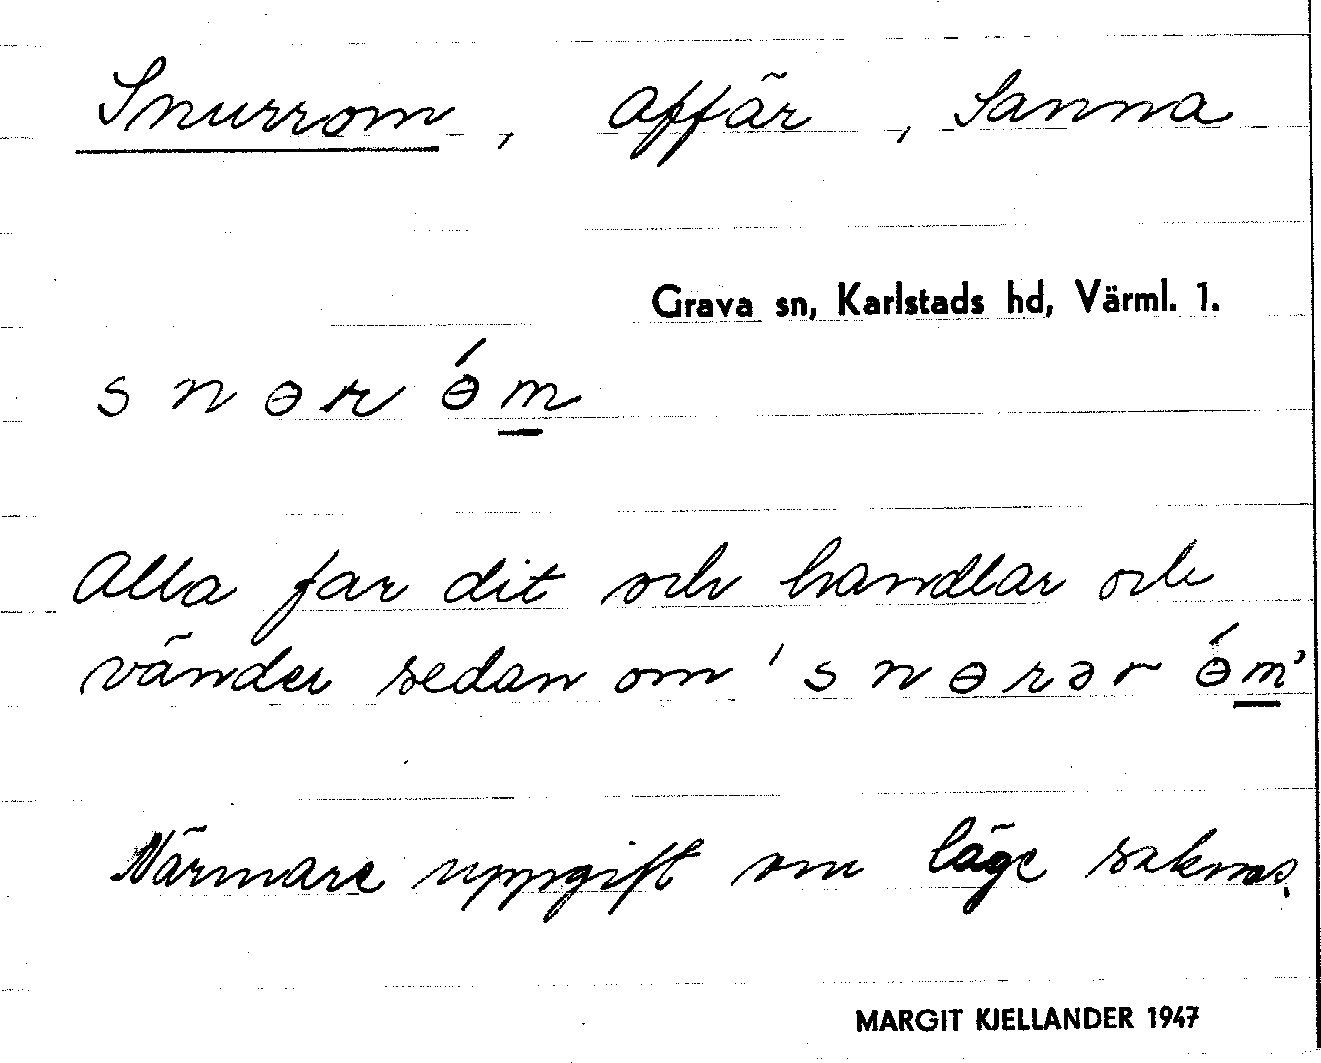 Snurrom, affär, Sanna
Grava sn, Karlstads hd, Värml. 1.
snɵrɵ́m
Alla far dit och handlar och
vänder sedan om 'snɵrər ɵ́m'
Närmare uppgift om läge saknas.
MARGIT KJELLANDER 1947